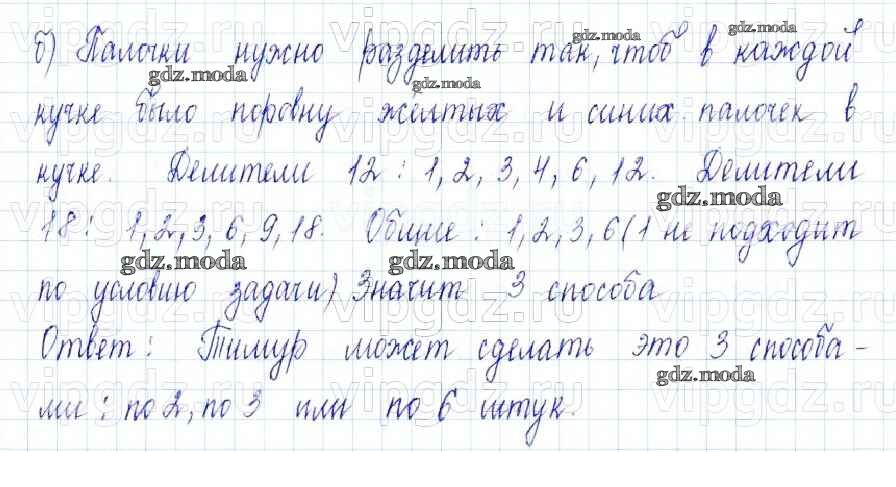 б) Палочки нужно разделить так, чтоб в каждой
кучке было поровну жёлтых и синих палочек в
кучке. Делители 12 : 1, 2, 3, 4, 6, 12. Делители
18 : 1, 2, 3, 6, 9, 18. Общие : 1, 2, 3, 6 (1 не подходит
по условию задачи) Значит 3 способа
Ответ : Тимур может сделать это 3 способа-
ми : по 2, по 3 или по 6 штук.
gdz.moda
gdz.moda
gdz.moda
gdz.moda
gdz.moda
gdz.moda
gdz.moda
gdz.moda
vipgdz.ru